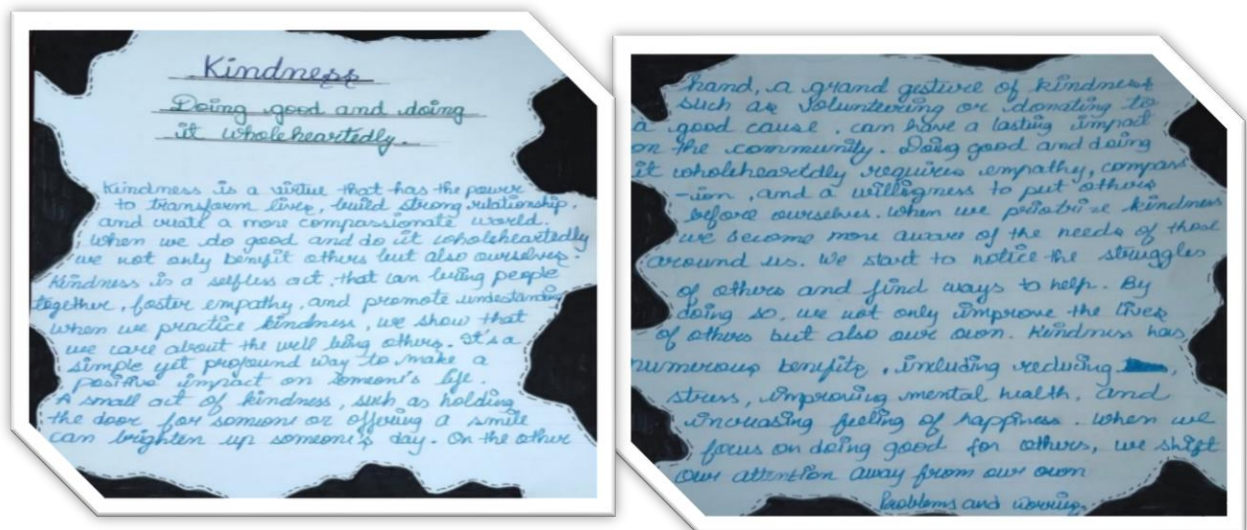 Kindness
Doing good and doing
it wholeheartedly.
Kindness is a virtue that has the power
to transform lives, build strong relationship,
and create a more compassionate world.
When we do good and do it wholeheartedly
we not only benifit others but also ourselves.
Kindness is a selfless act, that can bring people
together, foster empathy, and promote understanding
when we practice kindness, we show that
we care about the well being others. It's a
simple yet profound way to make a
positive impact on someone's life.
A small act of kindness, such as holding
the door for someone or offering a smile
can brighten up someone's day. On the other
hand, a grand gesture of kindness
such as Volunteering or donating to
a good cause, can have a lasting impact
on the community. Doing good and doing
it wholeheartdly requires empathy, compass
-ion, and a willigness to put others
before ourselves. When we priotrize kindness
we become more aware of the needs of those
around us. We start to notice the struggles
of others and find ways to help. By
doing so, we not only improve the lives
of others but also our own. Kindness has
numerous benifits, including reducing
stress, improving mental health, and
increasing feeling of happiness. When we
focus on doing good for others, we shift
our attention away from our own
Problems and worries.